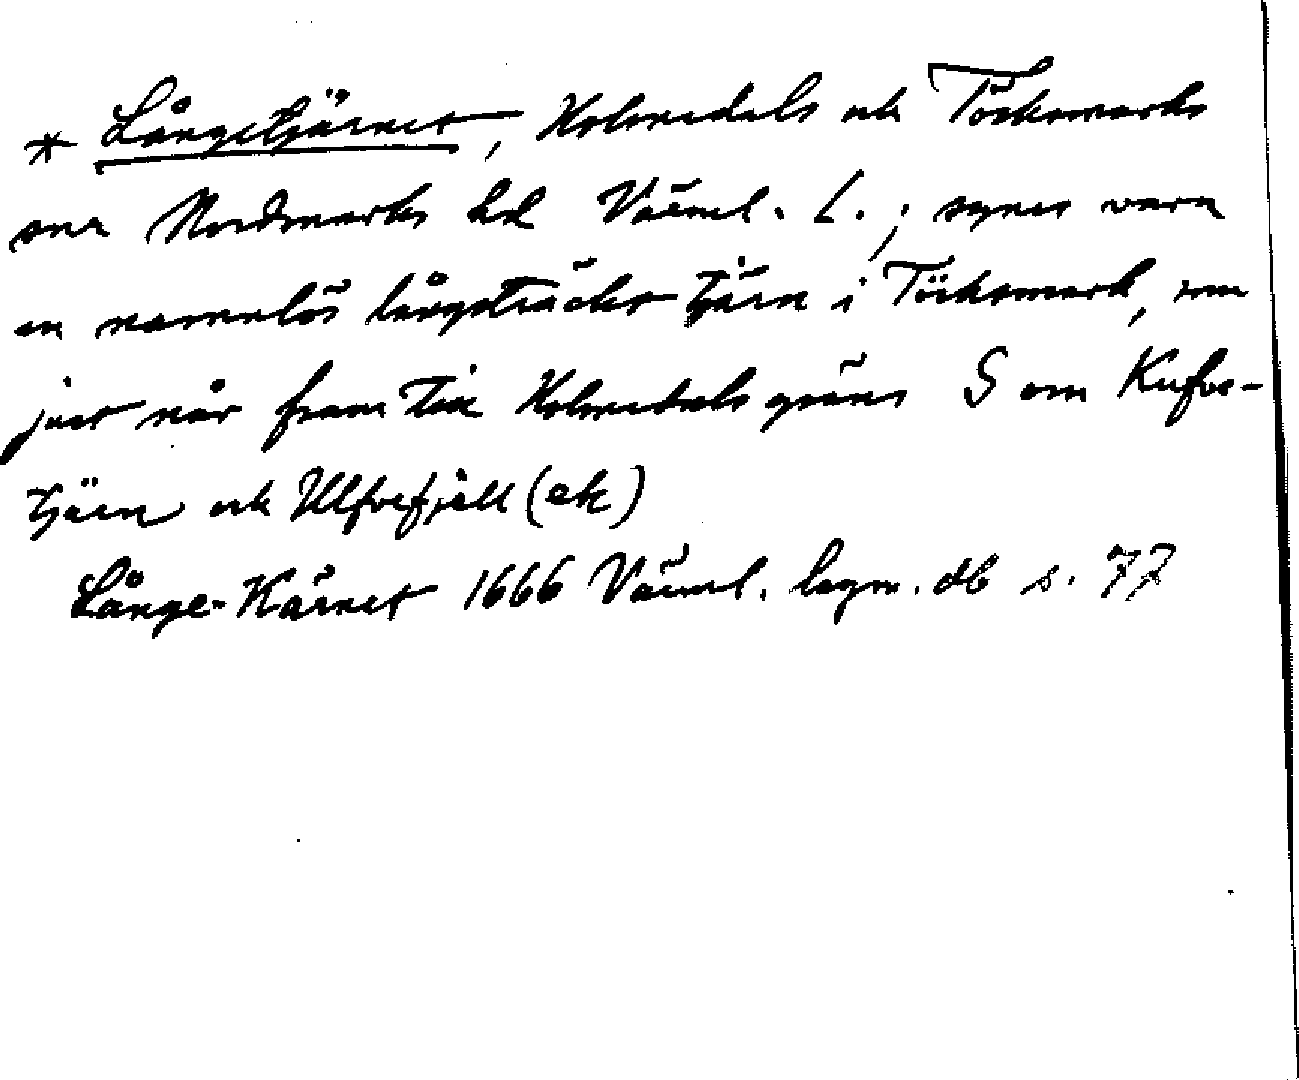 * Långetjärnet, Holmedals och Töcksmarks
snr Nordmarks hd Värml. L.; synes vara
en namnlös långsträckt tjärn i Töcksmark, som
just når fram till Holmedals gräns S om Kufve-
tjärn och Ulfvefjäll (ek)
Långe-Kärnet 1666 Värml. lagm. db s. 77